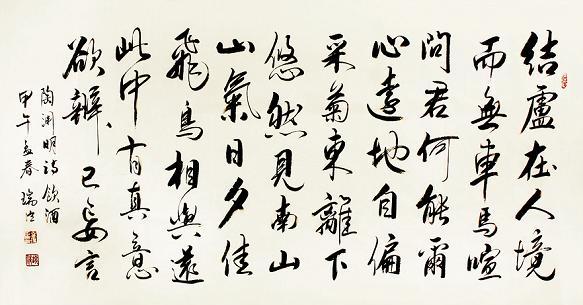 結盧在人境
而無車馬喧
問君何能爾
心遠地自偏
采菊東離下
悠然見南山
山氣日夕佳
飛鳥相與還
此中有真意
欲辨已忘言
陶淵明詩飲酒
甲午春瑞